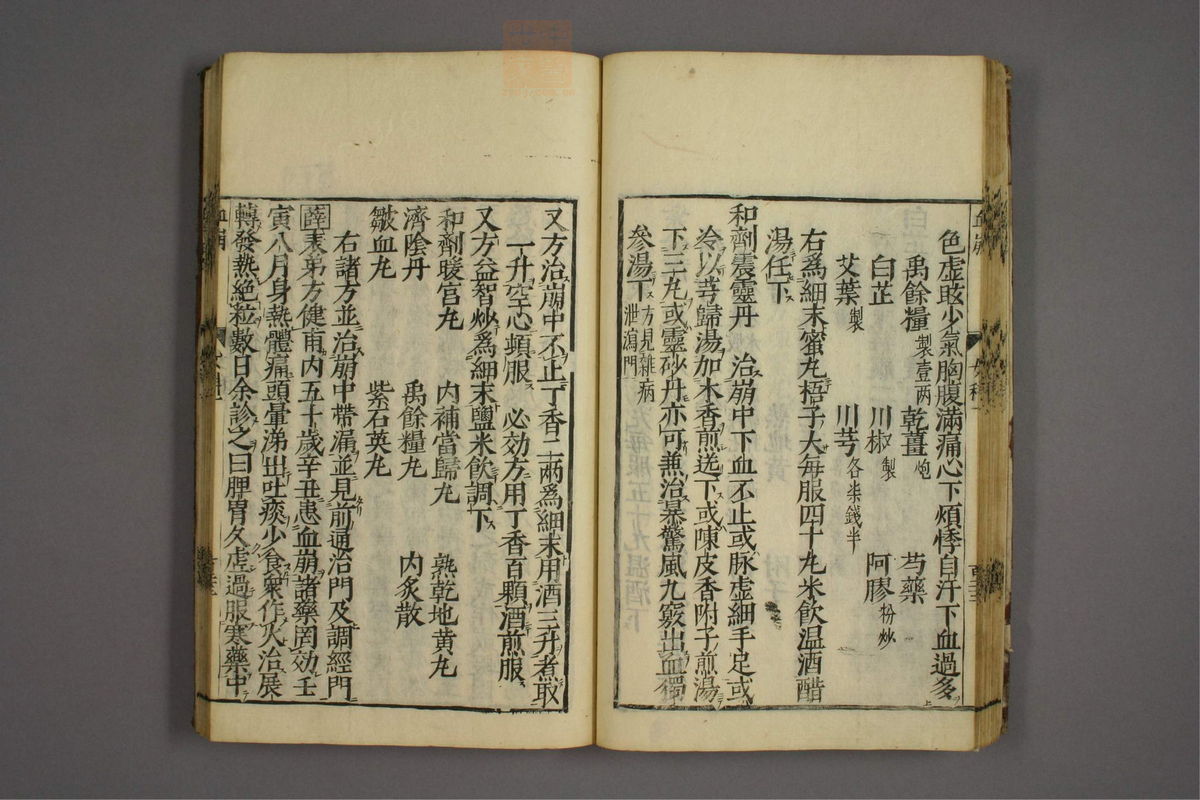 色虛眩少氣胸腹滿痛心下煩悸自汗下血過多
禹餘糧製壹两 乾薑炮 芍藥
白芷 川椒製 阿膠粉炒
艾葉製 川芎各柒錢半
右爲細末蜜丸梧子大每服四十丸米飲溫酒醋
湯任下
和劑震靈丹 治崩中下血不止或脉虛細手足或
冷以芎歸湯加木香煎送下或陳皮香附子煎湯
下三丸或靈砂丹亦可兼治暴驚風九竅出血獨
參湯下方見雜病泄瀉門
又方治崩中不止丁香二兩爲細末用酒三升煮取
一升空心頓服 必効方用丁香百顆酒煎服
又方益智炒爲細末鹽米飲調下
和劑暖宮丸 內補當歸丸 熟乾地黄丸
濟陰丹 禹餘糧丸 內炙散
皺血丸 紫石英丸
右諸方並治崩中帶漏並見前通治門及調經門
薛表弟方健甫内五十歲辛丑患血崩諸藥罔効壬
寅八月身熱體痛頭暈涕出吐痰少食衆作火治展
轉發熱絕粒數日余診之曰脾胃久虛過服寒藥中
血崩